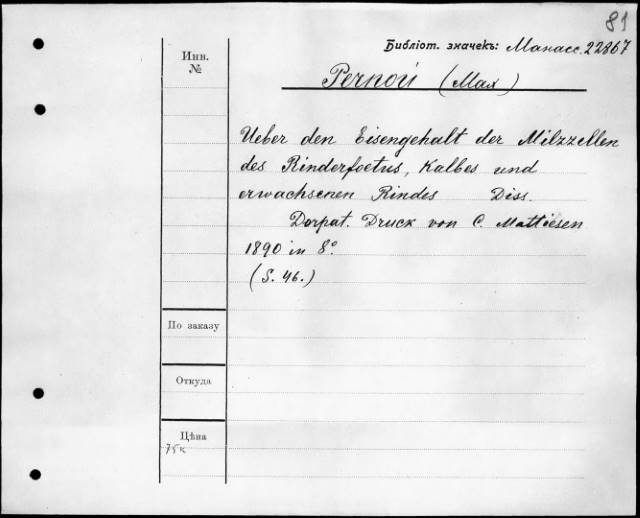 81
Библіот. значекъ: Манасс. 22867
Инв.
№
Pernou (Max)
Ueber den Eisengehalt der Milzzellen
des Rinderfoetus, Kalbes und
erwachsenen Rindes Diss.
Dorpat. Druck von C. Mattiesen
1890 in 8°.
(S. 46.)
По заказу
Откуда
Цѣна
75к